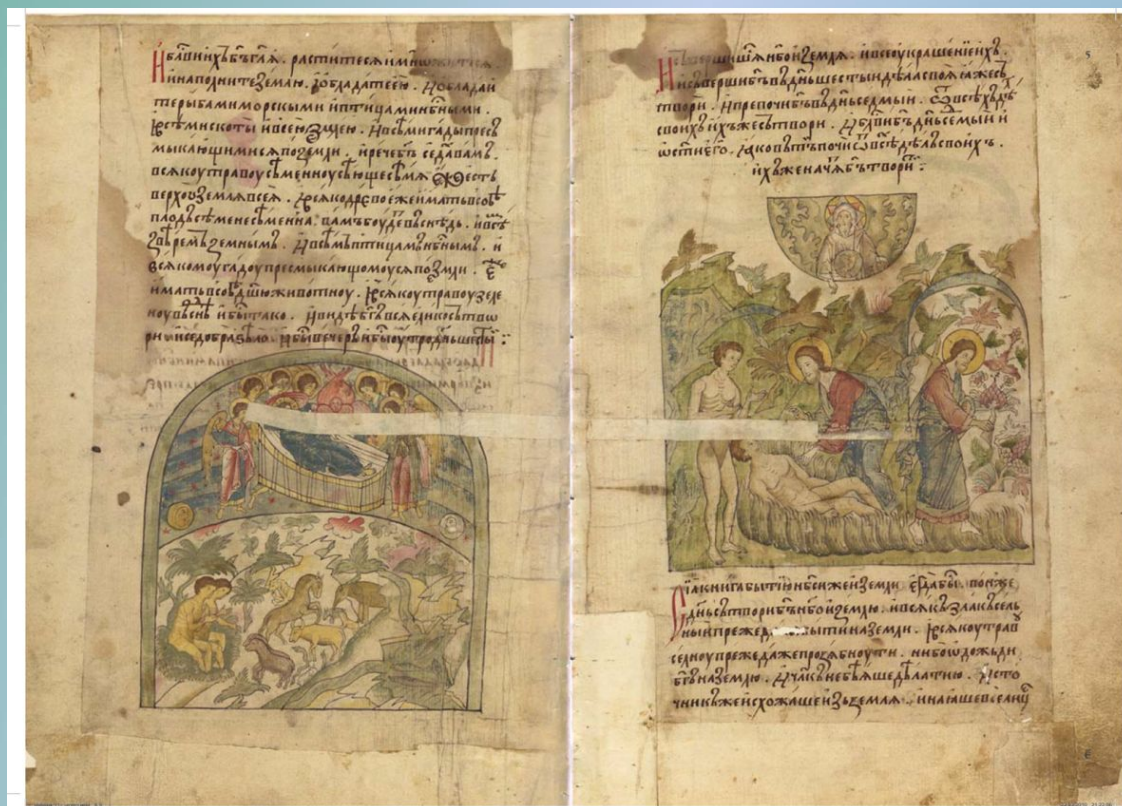 И бл҃ви ихъ б҃ъ гл҃я . раститеся и
и наполните землю . и обладаите ею . и обладаи
те рыбами морскими и птицами нб҃ными .
и всѣми скоты и всею землею . и всѣми гады пресъ
мыкающимися по земли . и рече б҃ъ се дахъ вамъ
всякоу травоу сѣменноу сѣющею сѣмя еже есть
верхоу земля всея . и всяко древо еже имать в собѣ
плодъ сѣмене сѣменна . вамъ боудеть въ снѣдь . и всѣ
звѣремъ земнымъ . и всѣмъ птицамъ нб҃нымъ . и
всякомоу гадоу пресмыкающомоуся по земли . еже
имать в собѣ дш҃ю животноу . и всякоу травоу зеле
ноу въ снѣдь и бысть тако . и видѣ б҃ъ вся елика сътво
ри и се добра ѕѣло и бысть вечеръ и бысть оутро дн҃ь шестыи :
И съвершишася нб҃о и земля . и все оукрашение ихъ .
И съверши б҃ъ въ дн҃ь шестыи дѣла своя яже съ
твори . и препочи б҃ъ въ дн҃ь седмыи . ѿ всѣхъ дѣ
своихъ ихъже сътвори . и бл҃ви б҃ъ дн҃ь семыи и
ѡсти его . яко въ тъ почи ѿ всѣ дѣлъ своихъ .
ихъже начятъ б҃ъ творити :
Сіа книга бытію нб҃си же и земли егда бы . в онже
дн҃ь сътвори б҃ъ нб҃о и землю . и всякъ злакъ сель
ныи прежде быти на земли . и всякоу трав
селноу прежде даже прозябноути . не бо ѡдожди
б҃ъ на землю . и чл҃къ не бѣяше дѣлати ю . исто
чникъ же исхожаше изъ земля . и напаяше все лице